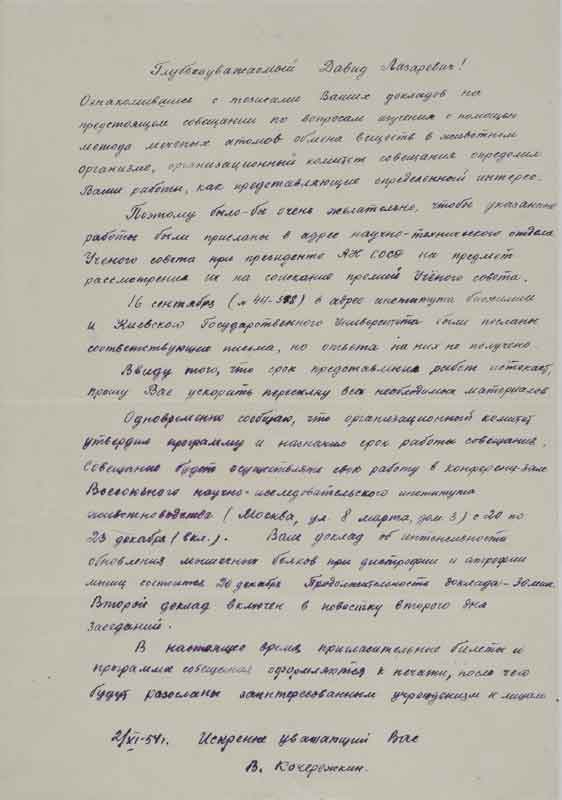 Глубокоуважаемый Давид Лазаревич!
Ознакомившись с тезисами Ваших докладов на
предстоящем совещании по вопросам изучения с помощью
метода меченых атомов обмена веществ в животном
организме, организационный комитет совещания определил
Ваши работы, как представляющие определенный интерес.
Поэтому было-бы очень желательно, чтобы указанные
работы были присланы в адрес научно-технического отдела
Ученого совета при президенте АХ на предмет
рассмотрения их на соискание премий Учёного совета.
16 сентября (н 44-) в адрес института биохимии
и Киевского Государственного Университета были посланы
соответствующие письма, но ответа на них не получено
Ввиду того, что срок представления работ истекает,
прошу Вас ускорить пересылку всех необходимых материалов
Одновременно сообщаю, что организационный комитет
утвердил программу и назначил срок работы совещания.
Совещание будет осуществлять свою работу в конференц-зале
Всесоюзного научно-исследовательского института
животноводства (Москва, ул. 8 марта, дом 3) с 20 по
23 декабря (вкл.). Ваш доклад об интенсивности
обновления мышечных белков при дистрофии и атрофии
мышц состоится 20 декабря Продолжительность доклада-30 мин.
Второй доклад включен в повестку второго дня
заседаний.
В настоящее время пригласительные билеты и
программа совещания оформляются к печати, после чего
будут разосланы заинтересованным учреждениям и лицам.
2/XI-54г. Искренне уважающий Вас
В. Кочережкин.